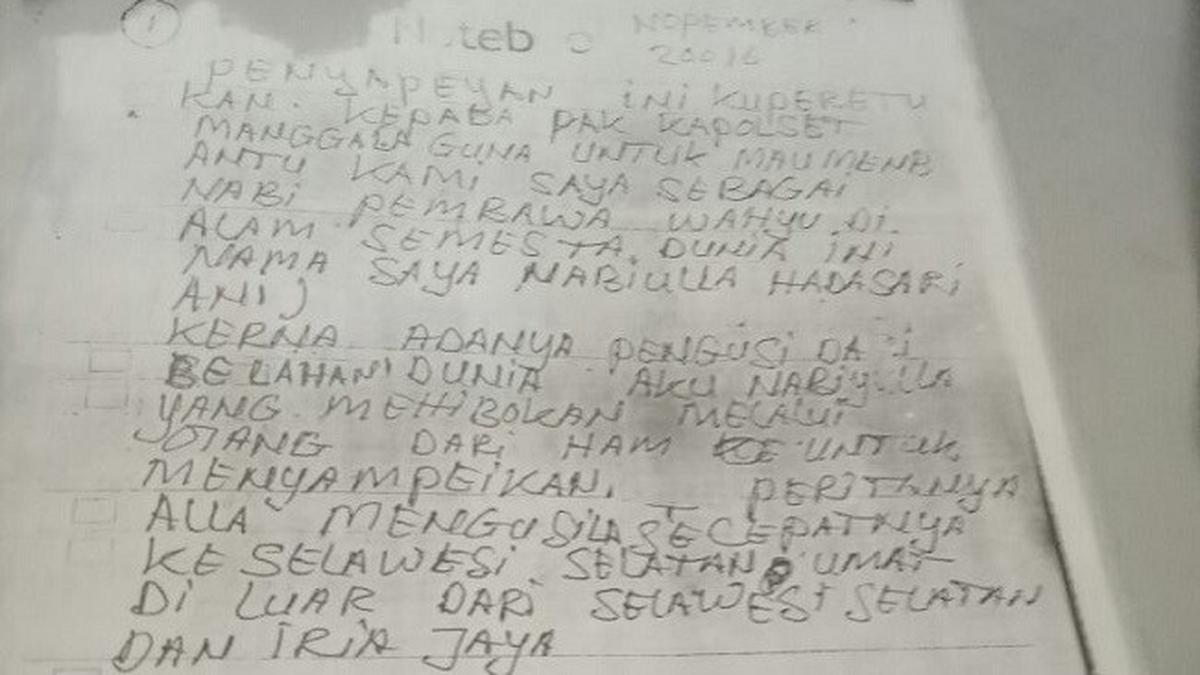 1
NOPEMBER
PENYAPEYAN INI KUPERETU
KAN. KEPADA PAK KAPOLSET
MANGGALA GUNA UNTUK MAU MENB
ANTU KAMI SAYA SEBAGAI
NABI PEMBAWA WAHYU DI
ALAM SEMESTA. DUNIA INI
NAMA SAYA NABIULLA HADASARI
ANI)
KERNA ADANYA PENGUSI DARI
BELAHAN DUNIA AKU NABIYULLA
YANG MEHIBOKAN MELALUI
JOTANG DARI HAM UNTUK
MENYAMPEIKAN. PERITANYA
ALLA MENGUSILA SECEPATNYA
KE SELAWESI SELATAN UMAT
DI LUAR DARI SELAWESI SELATAN
DAN IRIA JAYA